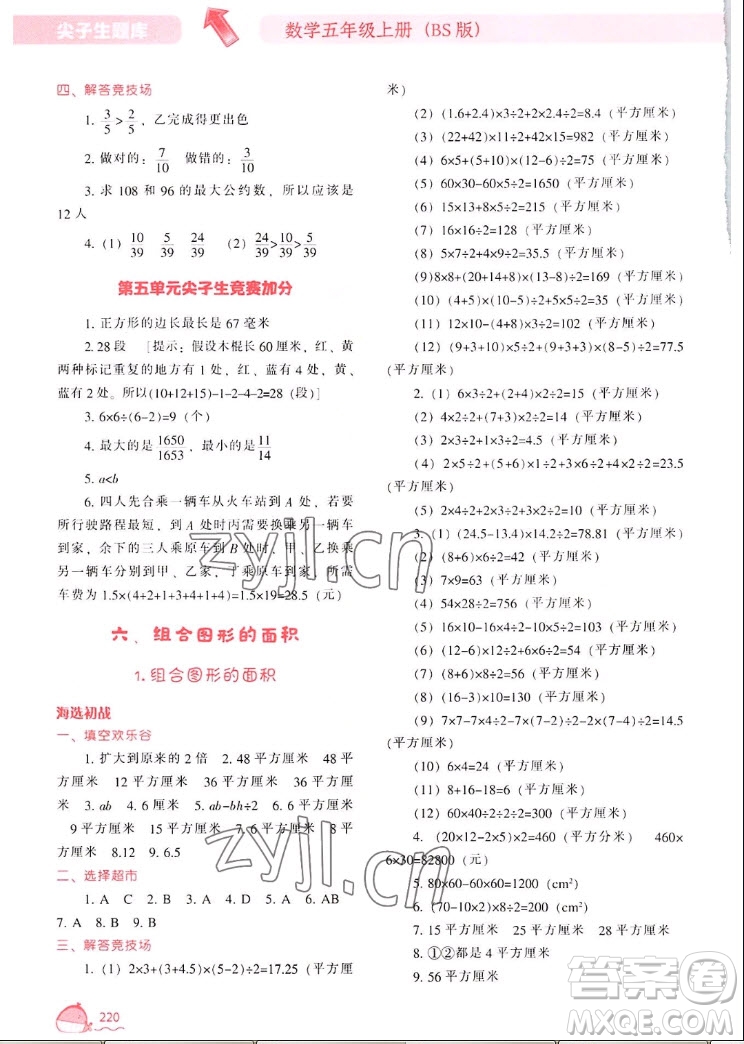 尖子生题库
数学五年级上册（BS版）
四、解答竞技场
1. 3/5>2/5，乙完成得更出色
2. 做对的：7/10 做错的：3/10
3. 求 108 和 96 的最大公约数，所以应该是
12 人
4.（1）10/39 5/39 24/39 （2）24/39>10/39>5/39
第五单元尖子生竞赛加分
1. 正方形的边长最长是 67 毫米
2. 28 段 [提示：假设木棍长 60 厘米，红、黄
两种标记重复的地方有 1 处，红、蓝有 4 处，黄、
蓝有 2 处。所以(10+12+15)-1-2-4-2=28（段）]
3. 6×6÷(6-2)=9（个）
4. 最大的是 1650/1653，最小的是 11/14
5. a<b
6. 四人先合乘一辆车从火车站到 A 处，若要
所行驶路程最短，到 A 处时丙需要换乘一辆车
到家，余下的三人乘原车到 B 处时，甲、乙换乘
另一辆车分别到甲、乙家，丁乘原车到家，所需
车费为 1.5×(4+2+1+3+4+1+4)=1.5×19=28.5（元）
六、组合图形的面积
1. 组合图形的面积
海选初战
一、填空欢乐谷
1. 扩大到原来的 2 倍 2. 48 平方厘米 48 平
方厘米 12 平方厘米 36 平方厘米 36 平方厘
米 3. ab 4. 6 厘米 5. ab-bh÷2 6. 6 平方厘米
9 平方厘米 15 平方厘米 7. 6 平方厘米 8 平
方厘米 8. 12 9. 6.5
二、选择超市
1. A 2. C 3. A 4. A 5. A 6. AB
7. A 8. B 9. B
三、解答竞技场
1.（1）2×3+(3+4.5)×(5-2)÷2=17.25（平方厘
米）
（2）(1.6+2.4)×3÷2+2×2.4÷2=8.4（平方厘米）
（3）(22+42)×11÷2+42×15=982（平方厘米）
（4）6×5+(5+10)×(12-6)÷2=75（平方厘米）
（5）60×30-60×5÷2=1650（平方厘米）
（6）15×13+8×5÷2=215（平方厘米）
（7）16×16÷2=128（平方厘米）
（8）5×7÷2+4×9÷2=35.5（平方厘米）
（9）8×8+(20+15+8-20)×(13-8)÷2=169（平方厘米）
（10）(4+5)×(10-5)÷2+5×5÷2=35（平方厘米）
（11）12×10-4×3÷2-4×3=102（平方厘米）
（12）(9+3+10)×5÷2+(9+3-3)×(8-5)÷2=77.5
（平方厘米）
2.（1）6×3÷2+(2+4)×2÷2=15（平方厘米）
（2）4×2÷2+(7+3)×2÷2=14（平方厘米）
（3）2×3÷2+1×3÷2=4.5（平方厘米）
（4）2×5÷2+(5+6)×1÷2+(3+6)×2÷2+2×4÷2=23.5
（平方厘米）
（5）2×4÷2+1×2÷2+3×2÷2+3×2÷2=11（平方厘米）
3.（1）(24.5-13.4)×14.2÷2=78.81（平方厘米）
（2）(8+6)×6÷2=42（平方厘米）
（3）7×9=63（平方厘米）
（4）54×28÷2=756（平方厘米）
（5）16×10-16×4÷2-10×5÷2-4×5÷2=93（平方厘米）
（6）(12-6)×12÷2+6×6÷2=54（平方厘米）
（7）(8+8)×7÷2=56（平方厘米）
（8）(16-3)×10÷2=130（平方厘米）
（9）7×7-7×4÷2-7×(7-2)÷2-2×(7-4)÷2=14.5
（平方厘米）
（10）6×4=24（平方厘米）
（11）8+16-18=6（平方厘米）
（12）60×40÷2÷2÷2=300（平方厘米）
4.（20×12-2×5)×2=460（平方分米） 460×
6×30=82800（元）
5. 80×60-60×60=1200（cm²）
6.（70-10×2)×8=400（cm²）
7. 15 平方厘米 25 平方厘米 28 平方厘米
8. ①②都是 4 平方厘米
9. 56 平方厘米
220
zyjl.cn
zyjl.cn
答案圈
MXQE.COM